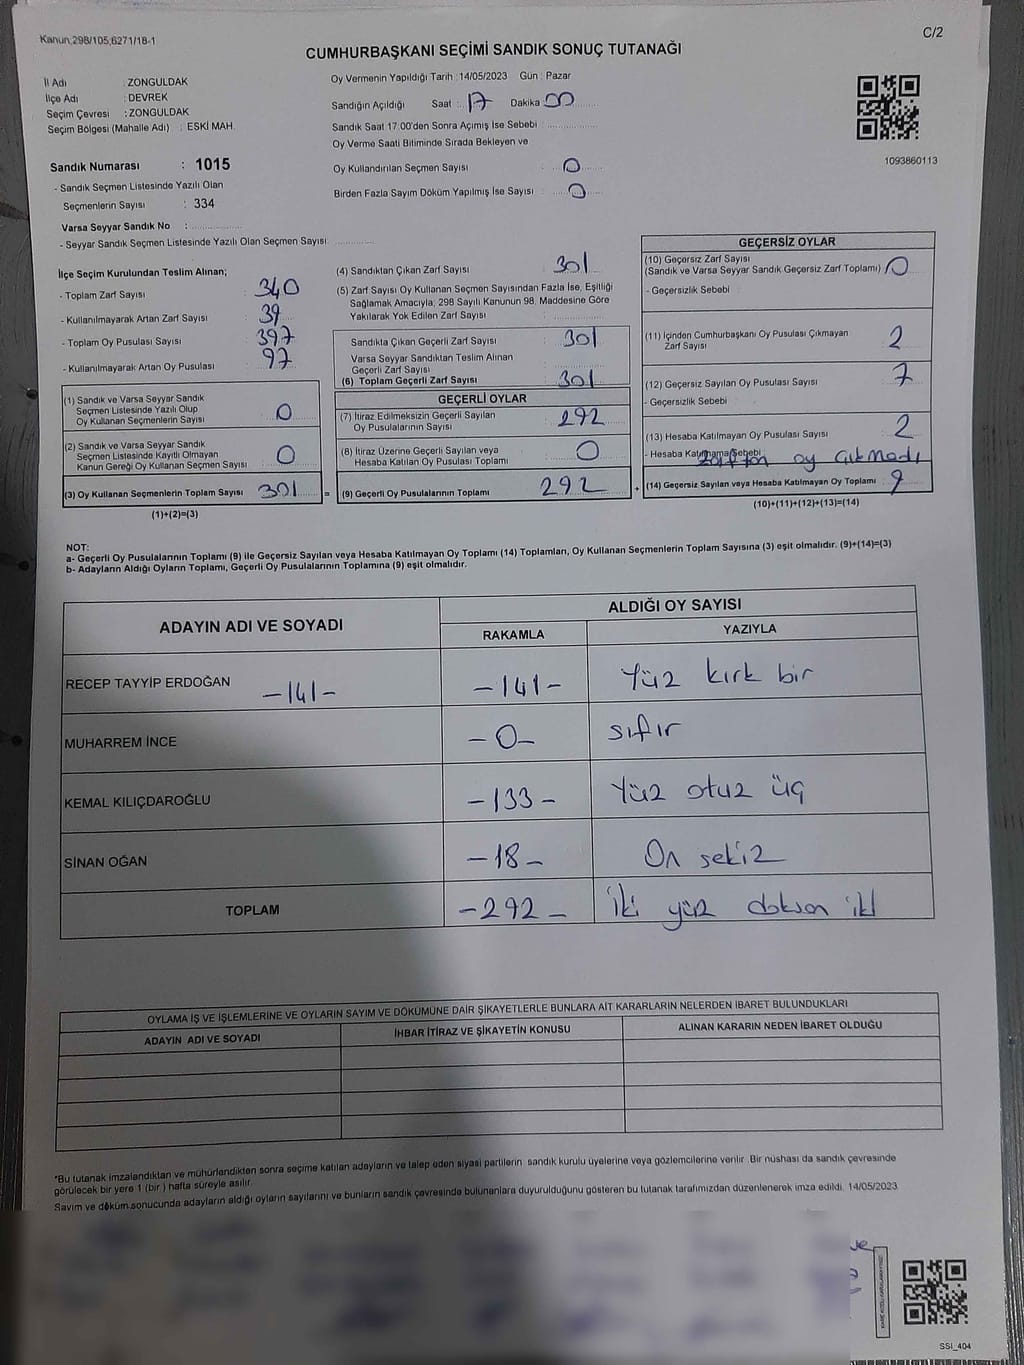 Kanun,298/105,6271/18-1
C/2
CUMHURBAŞKANI SEÇİMİ SANDIK SONUÇ TUTANAĞI
İl Adı : ZONGULDAK
İlçe Adı : DEVREK
Seçim Çevresi : ZONGULDAK
Seçim Bölgesi (Mahalle Adı) : ESKİ MAH.
Sandık Numarası : 1015
- Sandık Seçmen Listesinde Yazılı Olan
Seçmenlerin Sayısı : 334
Varsa Seyyar Sandık No :
- Seyyar Sandık Seçmen Listesinde Yazılı Olan Seçmen Sayısı
Oy Vermenin Yapıldığı Tarih :14/05/2023 Gün : Pazar
Sandığın Açıldığı Saat : 17 Dakika 00
Sandık Saat 17.00'den Sonra Açımış İse Sebebi
Oy Verme Saati Bitiminde Sırada Bekleyen ve
Oy Kullandırılan Seçmen Sayısı : 0
Birden Fazla Sayım Döküm Yapılmış İse Sayısı : 0
1093860113
İlçe Seçim Kurulundan Teslim Alınan;
- Toplam Zarf Sayısı : 340
- Kullanılmayarak Artan Zarf Sayısı : 39
- Toplam Oy Pusulası Sayısı : 397
- Kullanılmayarak Artan Oy Pusulası : 97
(1) Sandık ve Varsa Seyyar Sandık
Seçmen Listesinde Yazılı Olup
Oy Kullanan Seçmenlerin Sayısı : 0
(2) Sandık ve Varsa Seyyar Sandık
Seçmen Listesinde Kayıtlı Olmayan
Kanun Gereği Oy Kullanan Seçmen Sayısı : 0
(3) Oy Kullanan Seçmenlerin Toplam Sayısı 301 =
(1)+(2)=(3)
(4) Sandıktan Çıkan Zarf Sayısı : 301
(5) Zarf Sayısı Oy Kullanan Seçmen Sayısından Fazla İse, Eşitliği
Sağlamak Amacıyla; 298 Sayılı Kanunun 98. Maddesine Göre
Yakılarak Yok Edilen Zarf Sayısı :
Sandıkta Çıkan Geçerli Zarf Sayısı : 301
Varsa Seyyar Sandıktan Teslim Alınan
Geçerli Zarf Sayısı :
(6) Toplam Geçerli Zarf Sayısı : 301
GEÇERLİ OYLAR
(7) İtiraz Edilmeksizin Geçerli Sayılan
Oy Pusulalarının Sayısı : 292
(8) İtiraz Üzerine Geçerli Sayılan veya
Hesaba Katılan Oy Pusulası Toplamı : 0
(9) Geçerli Oy Pusulalarının Toplamı 292 +
GEÇERSİZ OYLAR
(10) Geçersiz Zarf Sayısı
(Sandık ve Varsa Seyyar Sandık Geçersiz Zarf Toplamı) 0
- Geçersizlik Sebebi
(11) İçinden Cumhurbaşkanı Oy Pusulası Çıkmayan
Zarf Sayısı 2
(12) Geçersiz Sayılan Oy Pusulası Sayısı 7
- Geçersizlik Sebebi
(13) Hesaba Katılmayan Oy Pusulası Sayısı 2
- Hesaba Katılmama Sebebi oy çıkmadı
(14) Geçersiz Sayılan veya Hesaba Katılmayan Oy Toplamı 9
(10)+(11)+(12)+(13)=(14)
NOT:
a- Geçerli Oy Pusulalarının Toplamı (9) ile Geçersiz Sayılan veya Hesaba Katılmayan Oy Toplamı (14) Toplamları, Oy Kullanan Seçmenlerin Toplam Sayısına (3) eşit olmalıdır. (9)+(14)=(3)
b- Adayların Aldığı Oyların Toplamı, Geçerli Oy Pusulalarının Toplamına (9) eşit olmalıdır.
ADAYIN ADI VE SOYADI
ALDIĞI OY SAYISI
RAKAMLA YAZIYLA
RECEP TAYYİP ERDOĞAN -141- -141- Yüz kırk bir
MUHARREM İNCE -0- sıfır
KEMAL KILIÇDAROĞLU -133- Yüz otuz üç
SİNAN OĞAN -18- On sekiz
TOPLAM -292- iki yüz doksan iki
OYLAMA İŞ VE İŞLEMLERİNE VE OYLARIN SAYIM VE DÖKÜMÜNE DAİR ŞİKAYETLERLE BUNLARA AİT KARARLARIN NELERDEN İBARET BULUNDUKLARI
ADAYIN ADI VE SOYADI İHBAR İTİRAZ VE ŞİKAYETİN KONUSU ALINAN KARARIN NEDEN İBARET OLDUĞU
*Bu tutanak imzalandıktan ve mühürlendikten sonra seçime katılan adayların ve talep eden siyasi partilerin sandık kurulu üyelerine veya gözlemcilerine verilir. Bir nüshası da sandık çevresinde
görülecek bir yere 1 (bir ) hafta süreyle asılır.
Sayım ve döküm sonucunda adayların aldığı oyların sayılarını ve bunların sandık çevresinde bulunanlara duyurulduğunu gösteren bu tutanak tarafımızdan düzenlenerek imza edildi. 14/05/2023
SSI_404